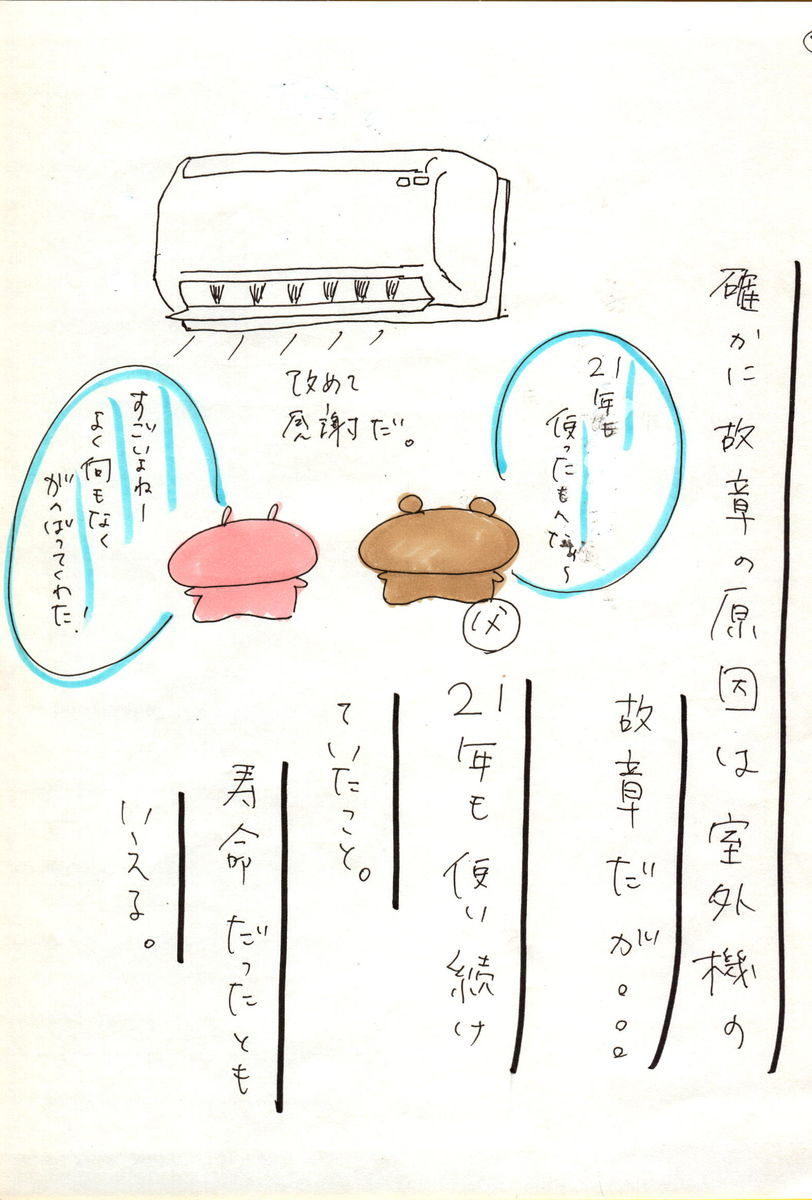 確かに故章の原因は室外機の
故章だが。。。
21年も使い続け
ていたこと。
寿命だったとも
いえる。
21年も
使ったもんなぁ〜
改めて
感謝だ。
すごいよねー
よく何もなく
がんばってくれた!
父